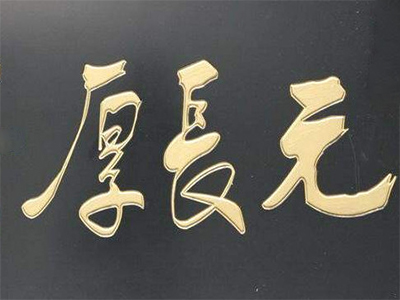 元長厚